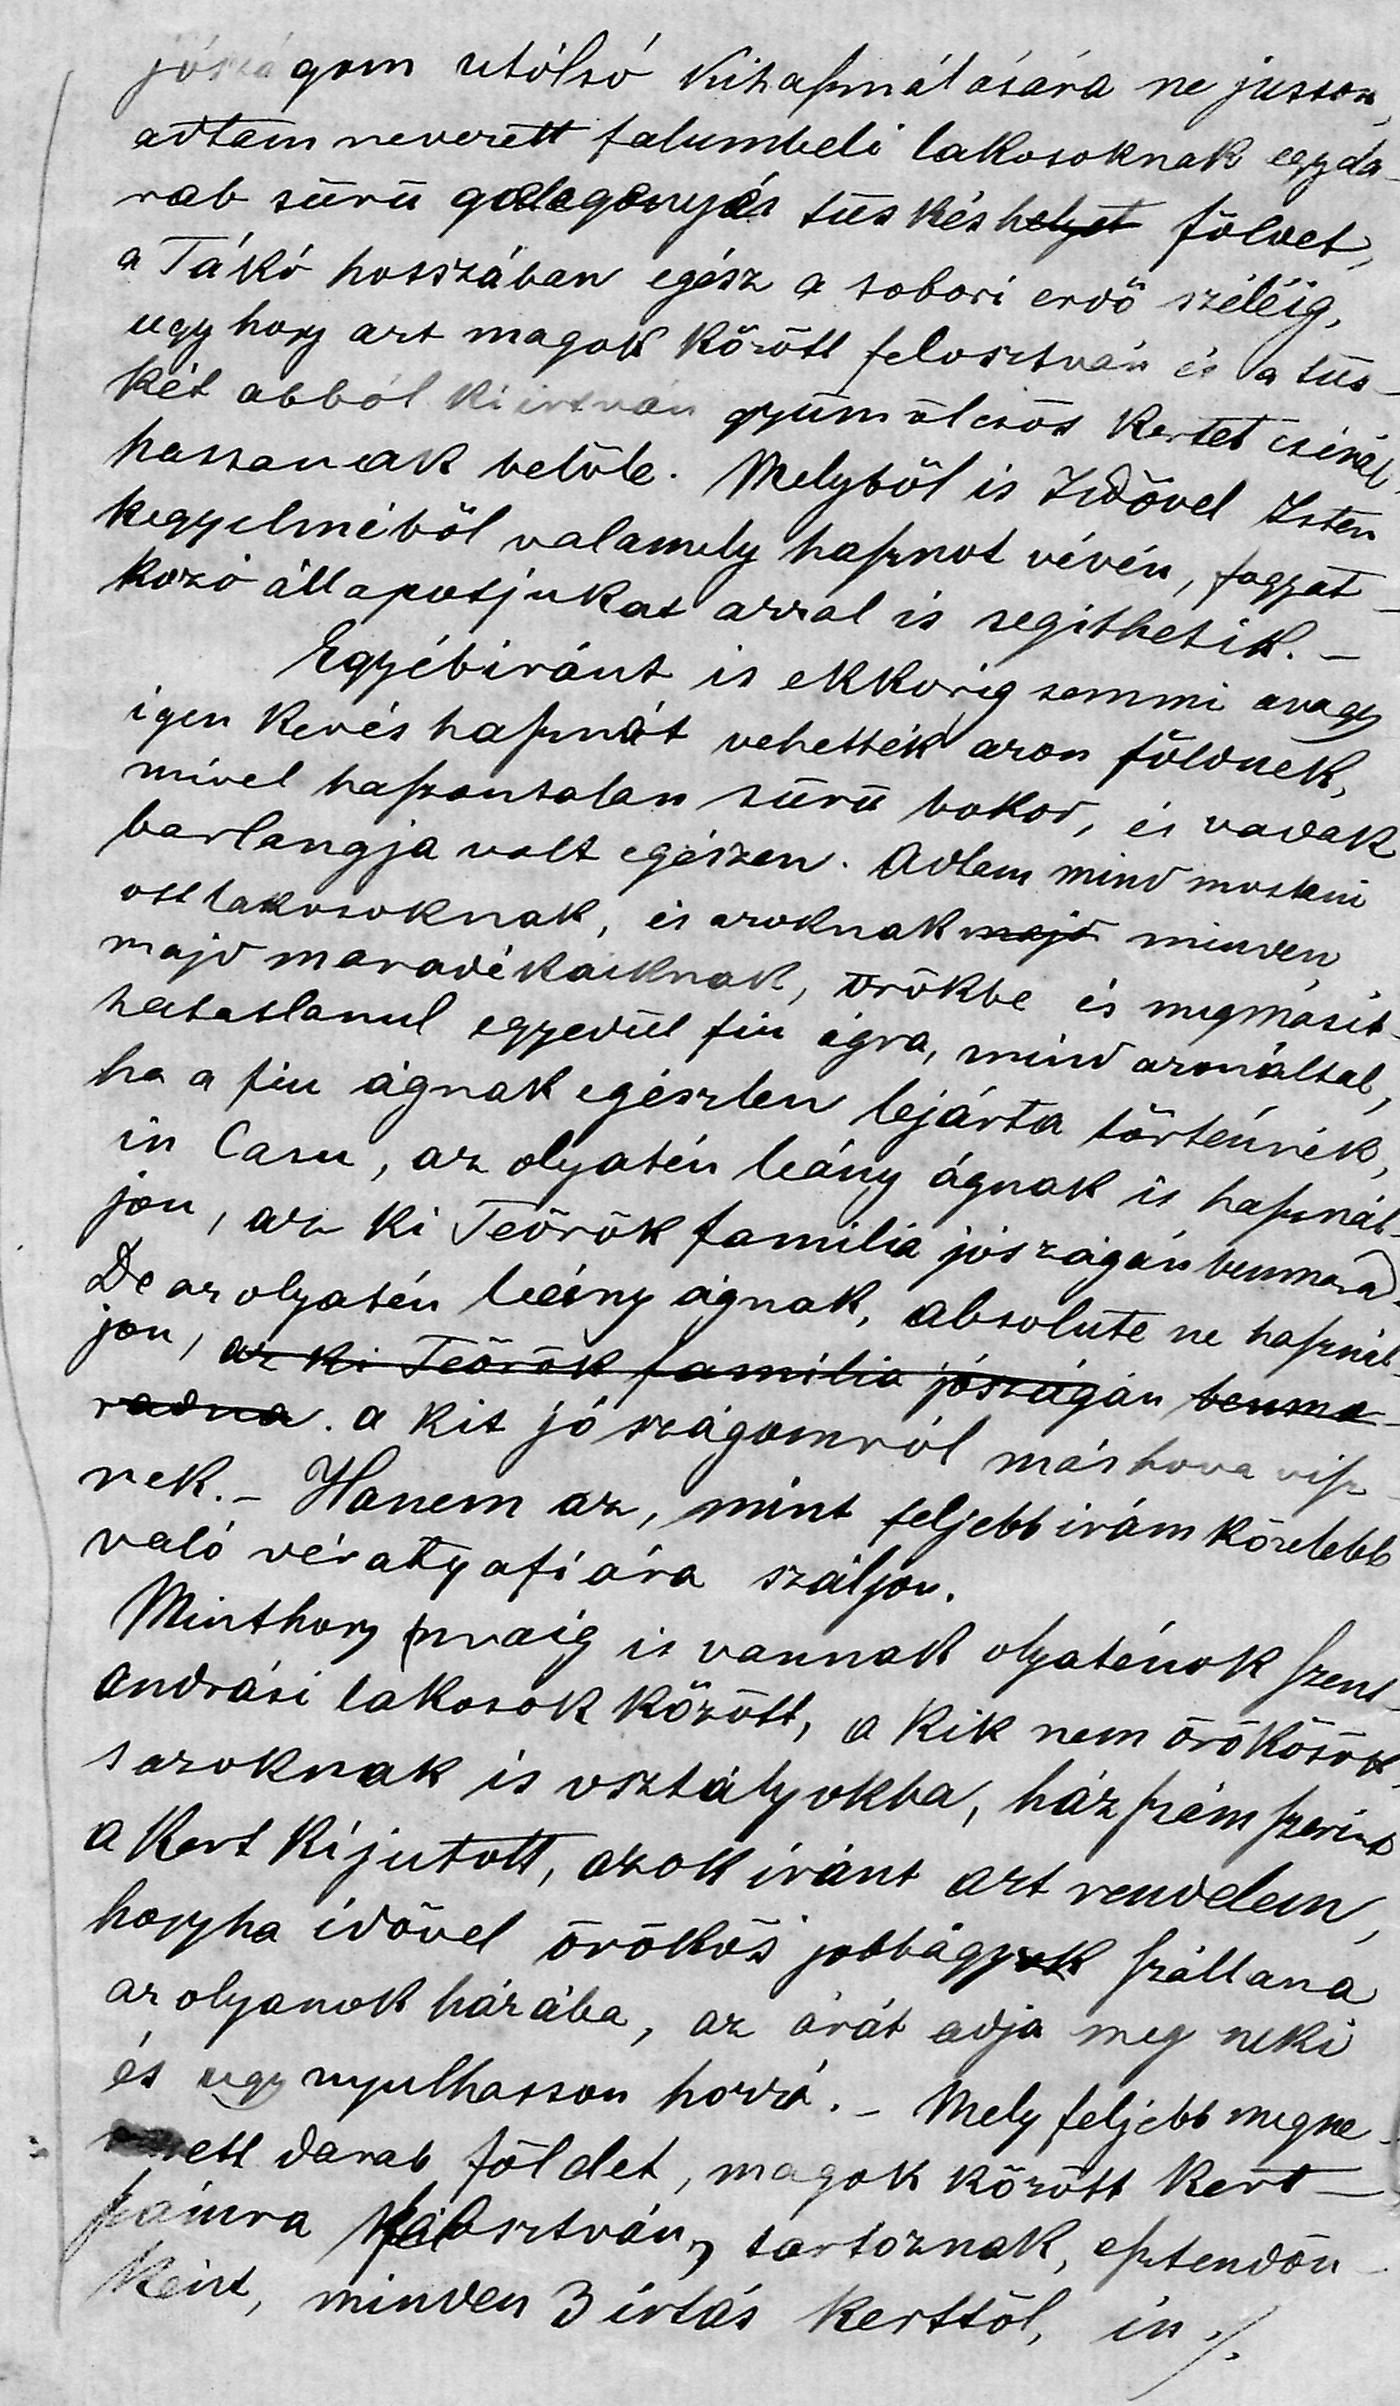 jószágom utólsó kihaſználására ne jusson,
adtam nevezett falumbeli lakosoknak egyda-
rab sürü galagonyás tüskés helyet földet,
a Tákó hosszában egész a sobori erdő széléig,
ugy hogy azt magok között felosztván és a tüs-
két abból kiirtván gyümölcsös kertet csinál-
hassanak belőle. Melyből is Idővel Isten
kegyelméből valamely haſznot vévén, fogyat-
kozó állapotjukat azzal is segithetik. –
Egyébiránt is ekkorig semmi avagy
igen kevés haſznát vehették azon földnek,
mivel haſzontalan sürü bokor, és vadak
barlangja volt egészen. Adtam mind mostani
ott lakosoknak, és azoknak majd minden
majd maradékaiknak, örökbe és megmásit-
hatatlanul egyedül fiu ágra, mind azonáltal,
ha a fiu ágnak egészlen lejárta történnék,
in Casu, az olyatén leány ágnak is haſznál-
jon, az ki Teörök familia jószágán benmarad
De az olyatén leány ágnak, absolute ne haſznál-
jon, az ki Teörök familia jószágán benma-
radna. a kit jószágomról máshova viſz-
nek. – Hanem az, mint feljebb irám közelebb
való vératyafiára száljon.
Minthogy pnraig is vannak olyatének ſzent
andrási lakosok között, a kik nem örökösök,
s azoknak is osztályokba, ház ſzám ſzerint
a kert kijutott, azok iránt azt rendelem,
hogyha idővel örökös jobbágyok ſzállana
az olyanok házába, az árát adja meg neki
és ugy nyulhasson hozzá. – Mely feljebb megne-
vezett darab földet, magok között kert –
ſzámra felosztván, tartoznak, eſztendőn –
ként, minden 3 irtás kerttől, in ./.